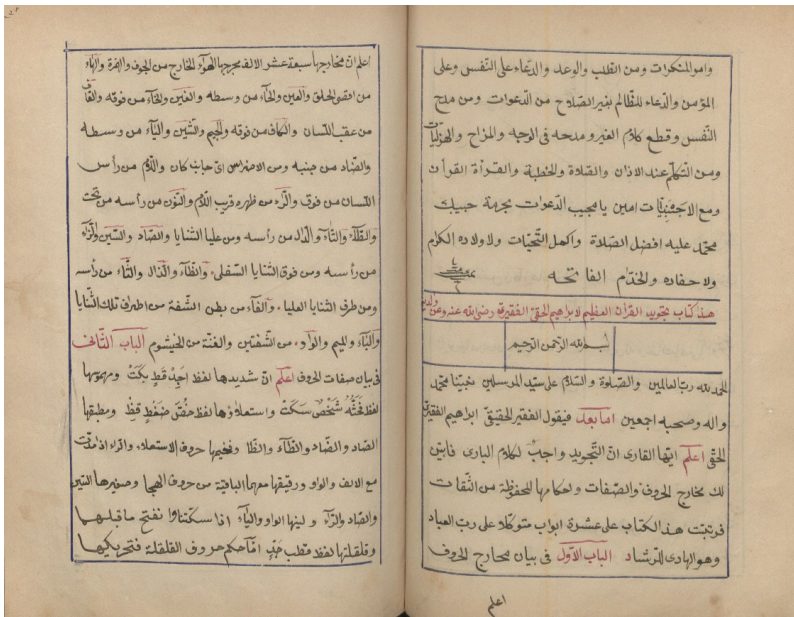 وامور المنكرات ومن الطلب والوعد والدعاء على النفس وعلى
المؤمن والدعاء للظالم بغير الصلاح من الدعوات ومن مدح
النفس وقطع كلام الغير ومدحه فى الوجه والمزاح والهزليات
ومن التكلم عند الاذان والصلاة والخطبة والقرأة القرأن
ومع الاجنبيات امين يا مجيب الدعوات بحرمة حبيبك
محمد عليه افضل الصلاة واكمل التحيات ولاولاده الكرام
ولاحفاده والخدام الفاتحه
هذا كتاب تجويد القرأن العظيم لابراهيم الحقى الفقيرى رضى الله عنه وعن والديه
بسم الله الرحمن الرحيم
الحمد لله رب العالمين والصلوة والسلام على سيد المرسلين نبينا محمد
واله وصحبه اجمعين اما بعد فيقول الفقير الحقيقى ابراهيم الفقيرى
الحقى اعلم ايها القارى ان التجويد واجب لكلام البارى فابين
لك مخارج الحروف والصفات واحكامها المحفوظة من الثقات
فرتبت هذا الكتاب على عشرة ابواب متوكلا على رب العباد
وهو الهادى للرشاد الباب الاول فى بيان مخارج الحروف
اعلم
اعلم ان مخارجها سبعة عشر الالف مخرجها الهواء الخارج من الجوف والهمزة والهاء
من اقصى الحلق والعين والحاء من وسطه والغين والخاء من فوقه والقاف
من عقب اللسان والكاف من فوقه والجيم والشين والياء من وسطه
والضاد من جنبه ومن الاضراس اى جانب كان واللام من رأس
اللسان من فوق والراء من ظهره قريب اللام والنون من رأسه من تحت
والطاء والتاء والدال من رأسه ومن عليا الثنايا والصاد والسين والزاء
من رأسه ومن فوق الثنايا السفلى والظاء والذال والثاء من رأسه
ومن طرفى الثنايا العليا والفاء من بطن الشفة من اطراف تلك الثنايا
والباء والميم والواو من الشفتين والغنة من الخيشوم الباب الثانى
فى بيان صفات الحروف اعلم ان شديدها لفظ اجد قط بكت ومهموسها
لفظ فحثه شخص سكت واستعلاؤها لفظ خص ضغط قظ ومطبقها
الصاد والضاد والطاء والظا وتفخيمها حروف الاستعلاء والراء اذا
مع الالف والواو ورقيقها معهما الباقية من حروف الهجا وصفيرها السين
والصاد والزاء ولينها الواو والياء اذا سكنتا وانفتح ما قبلهما
وقلقلتها لفظ قطب جد اما حكم حروف القلقلة فتحريكها